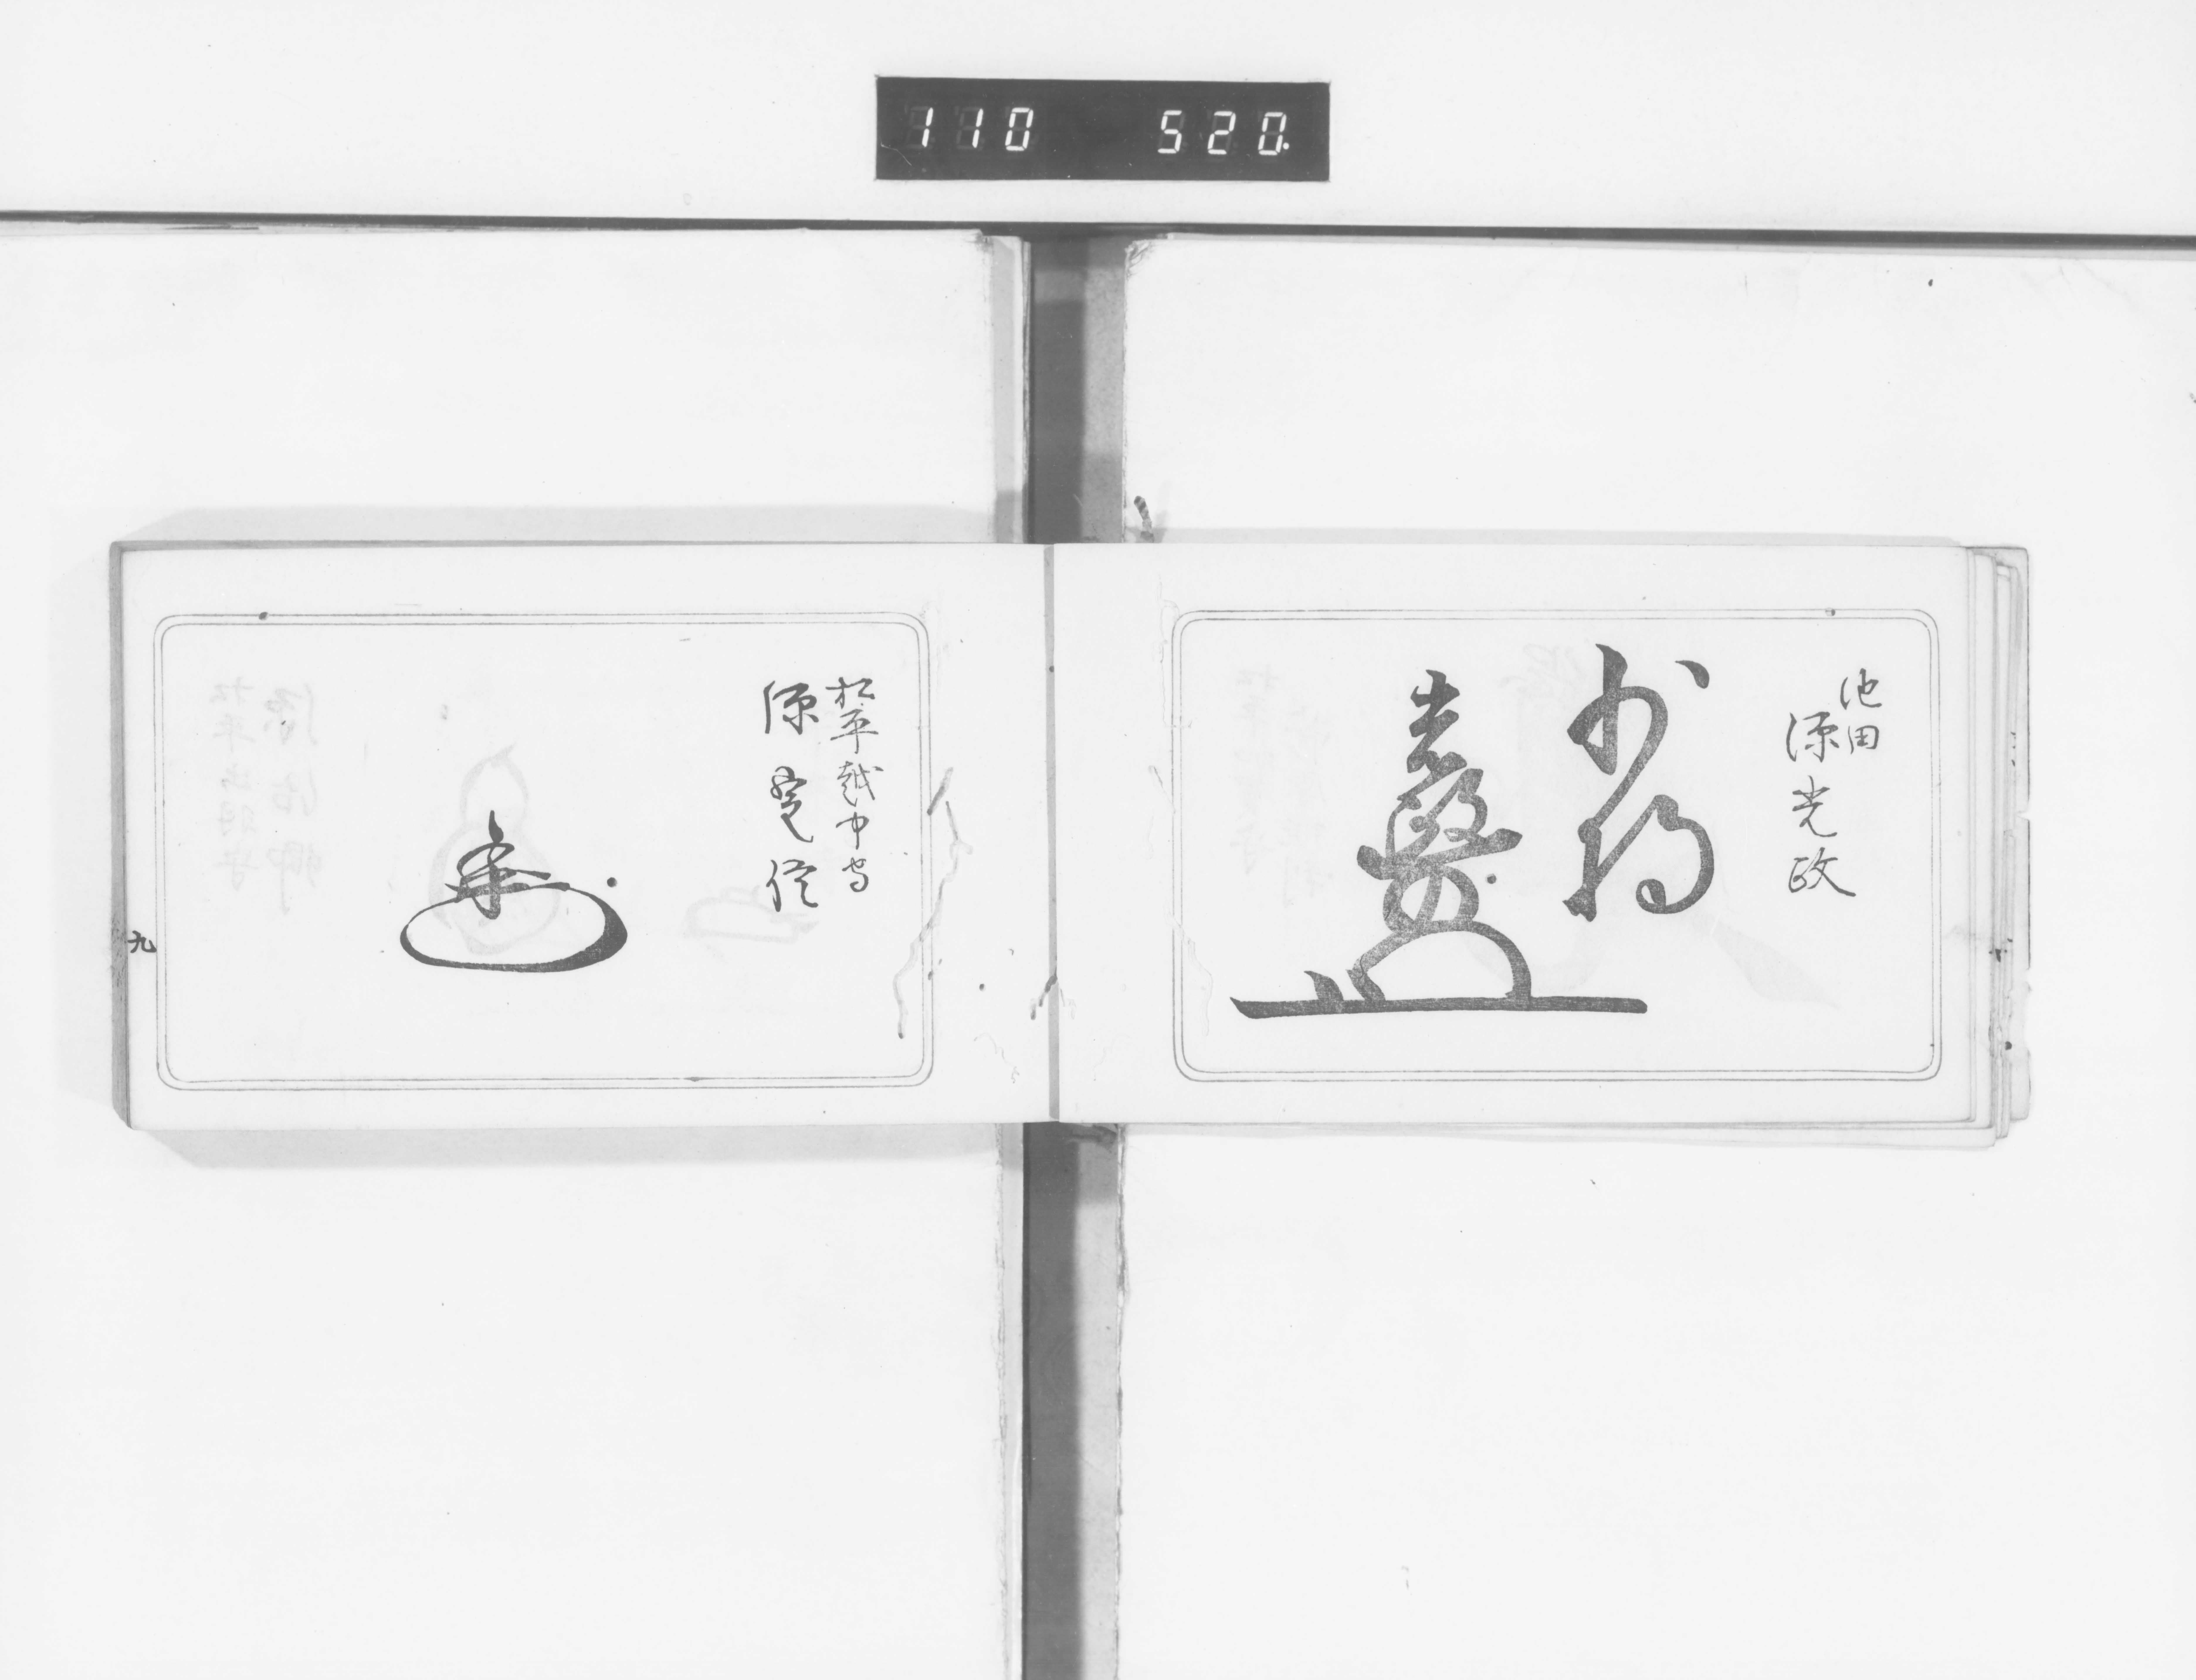 110 520.
池田
源光政
少将
松平越中守
源定信
九